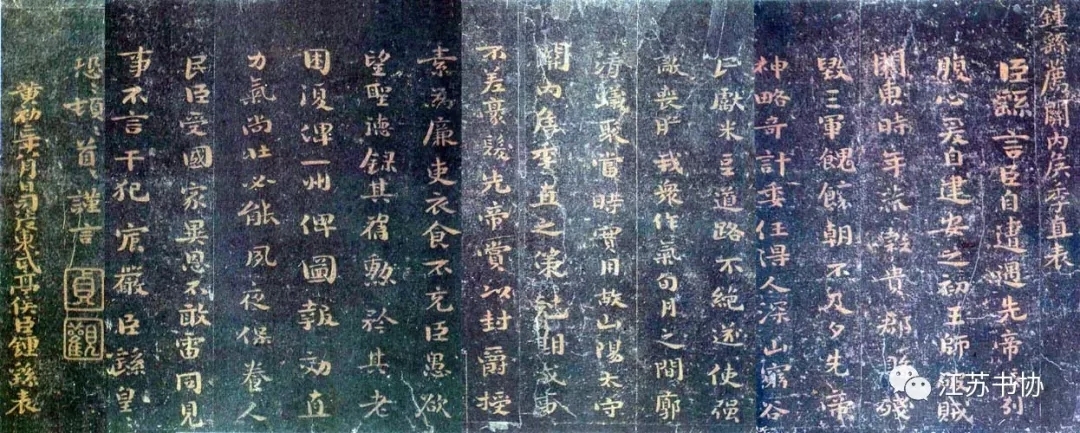 鍾繇薦關內侯季直表
臣繇言臣自遭遇先帝忝列
腹心爰自建安之初王師破賊
關東時年荒榖貴郡縣殘
毀三軍餽饟朝不及夕先帝
神略奇計委任得人深山窮谷
民獻米豆道路不絕遂使强
敵喪膽我衆作氣旬月之間廓
清蟻聚當時實用故山陽太守
關內侯季直之策尅期成事
不差豪髮先帝賞以封爵授
素為廉吏衣食不充臣愚欲
望聖德錄其舊勳矜其老
困復俾一州俾圖報効直
力氣尚壯必能夙夜保養人
民臣受國家異恩不敢雷同見
事不言干犯宸嚴臣繇皇
恐〻頓〻首〻謹言
貞觀
黃初二年八月日司徒東武亭侯臣鍾繇表
江苏书协